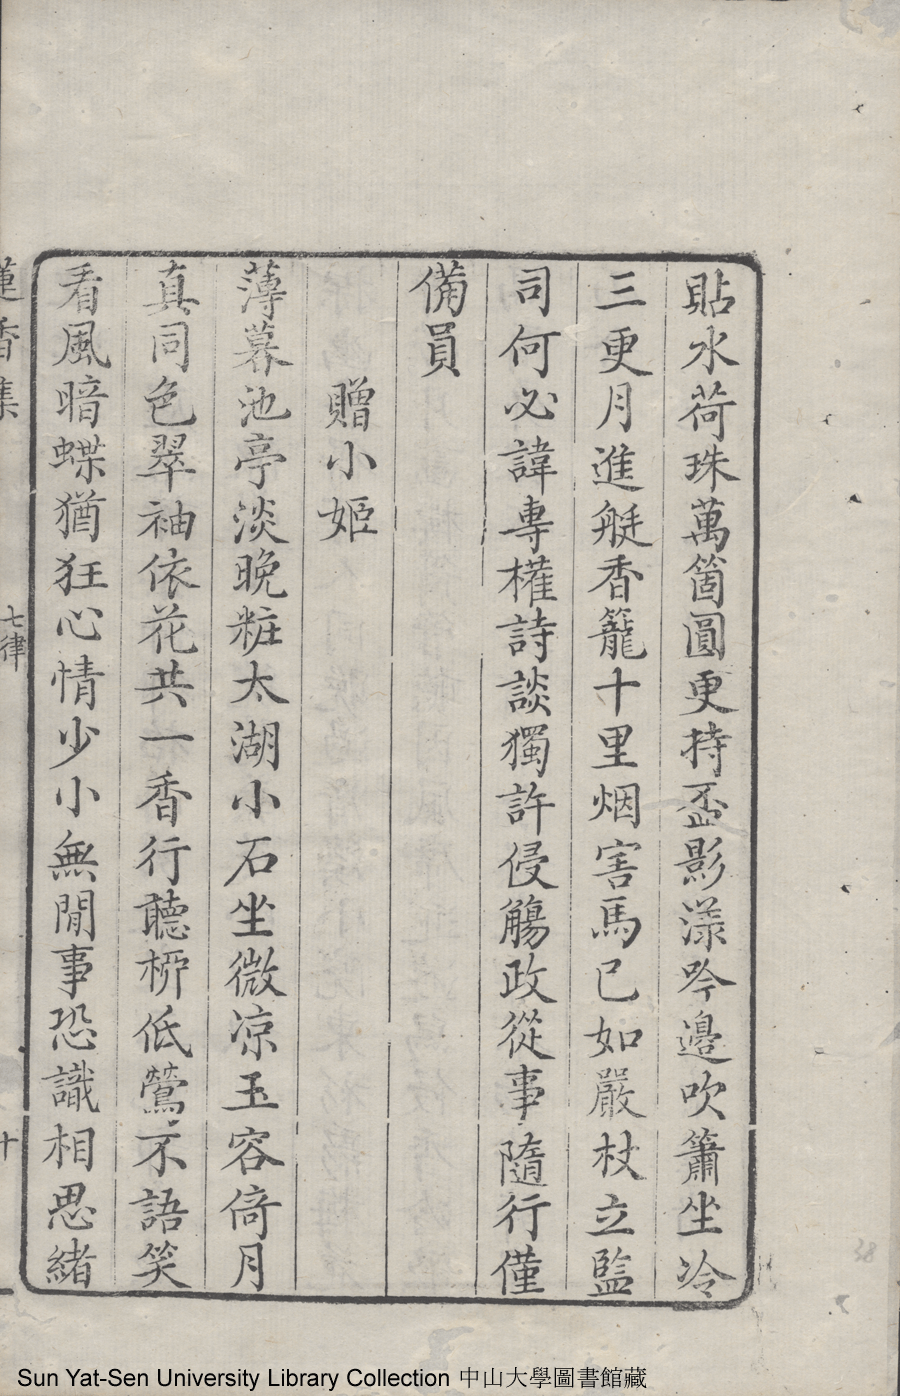 貼水荷珠萬箇圓更持盃影漾吟邊吹簫坐冷
三更月進艇香籠十里烟害馬已如嚴杖立監
司何必諱專權詩談獨許侵觴政從事隨行僅
備員
贈小姬
薄暮池亭淡晚粧太湖小石坐微凉玉容倚月
真同色翠袖依花共一香行聽桞低鶯不語笑
看風暗蝶猶狂心情少小無閒事恐識相思緒
蓮香集
七律
十
Sun Yat-Sen University Library Collection 中山大學圖書館藏